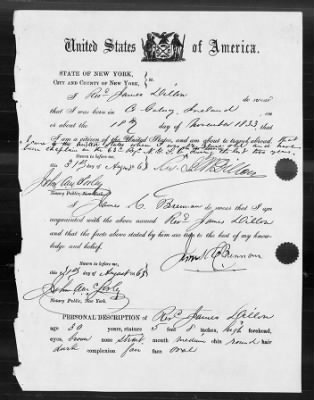 United States of America.
STATE OF NEW YORK,
CITY AND COUNTY OF NEW YORK, } ss.
I Revd James Dillon do swear
that I was born in Co Galway, Ireland on
or about the 18th day of November 1833
that I am a citizen of the United States, and am about to travel abroad. that
I came to the United States when I was
been Chaplain in the 63d Regt N.Y. two years.
Sworn to before me
this 31st day of August 63
Notary Public, New York.
I James C. Brennan do swear that I am
acquainted with the above named Revd James Dillon
and that the facts above stated by him are true to the best of my know-
ledge and belief.
Sworn to before me,
this day of August 1863
Notary Public, New York.
PERSONAL DESCRIPTION OF Revd James Dillon
age 30 years, stature 5 feet 8 inches, high forehead,
eyes, brown nose strait mouth medium chin round hair
dark complexion fair face oval